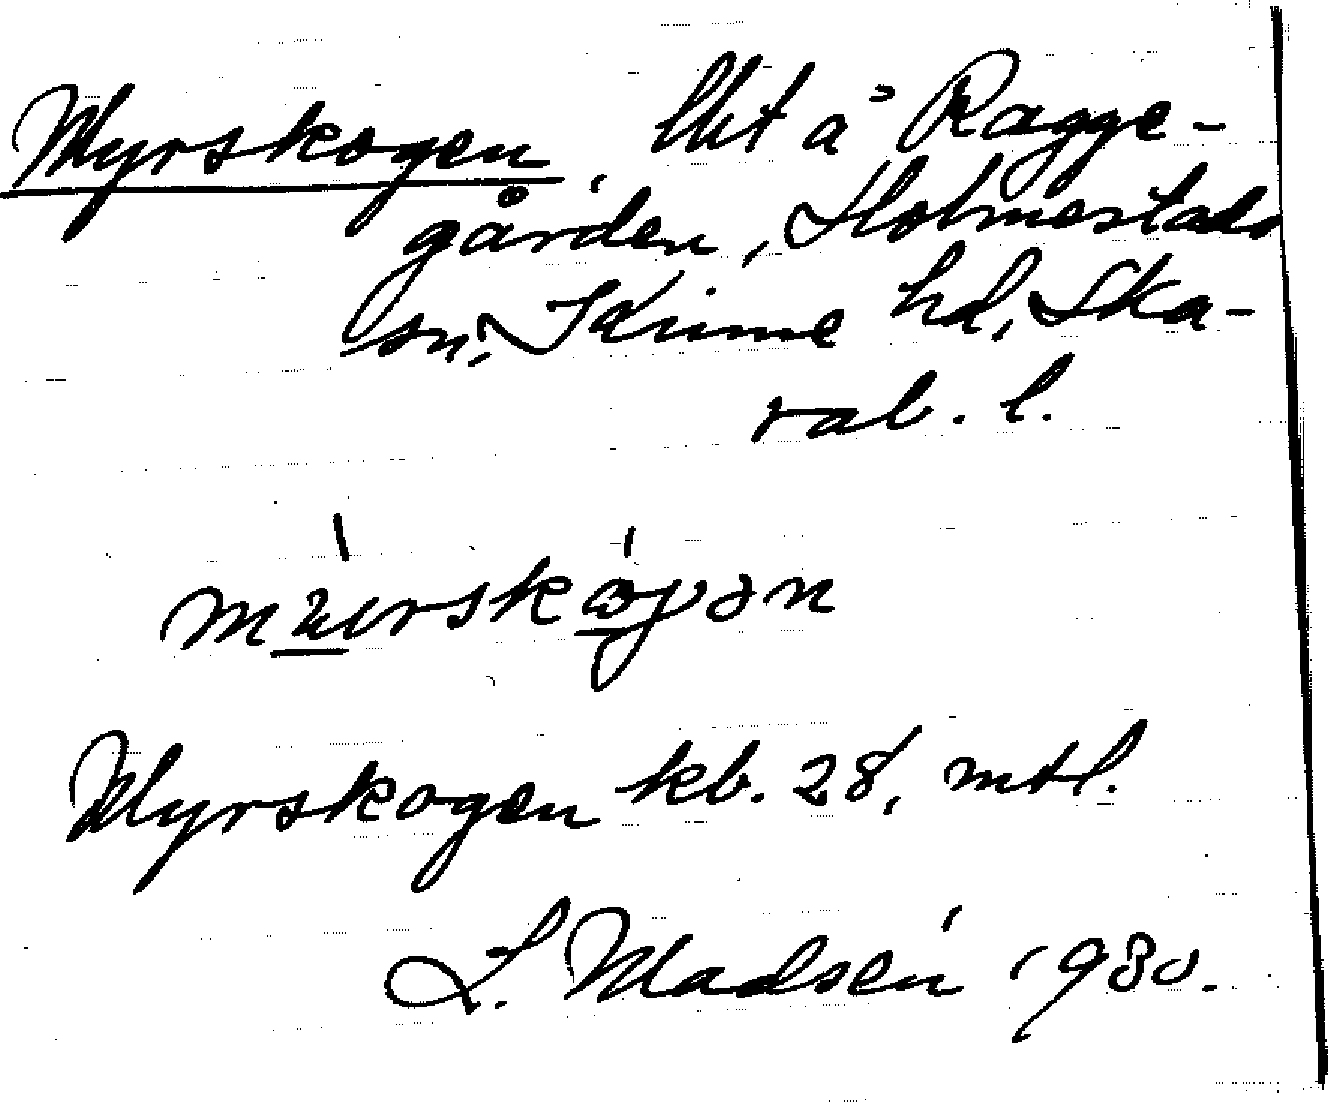 Myrskogen, lht å Ragge-
gården, Holmestads
sn, Kinne hd, Ska-
rab. l.
Myrskogen kb. 28, mtl.
L. Madsén 1930.